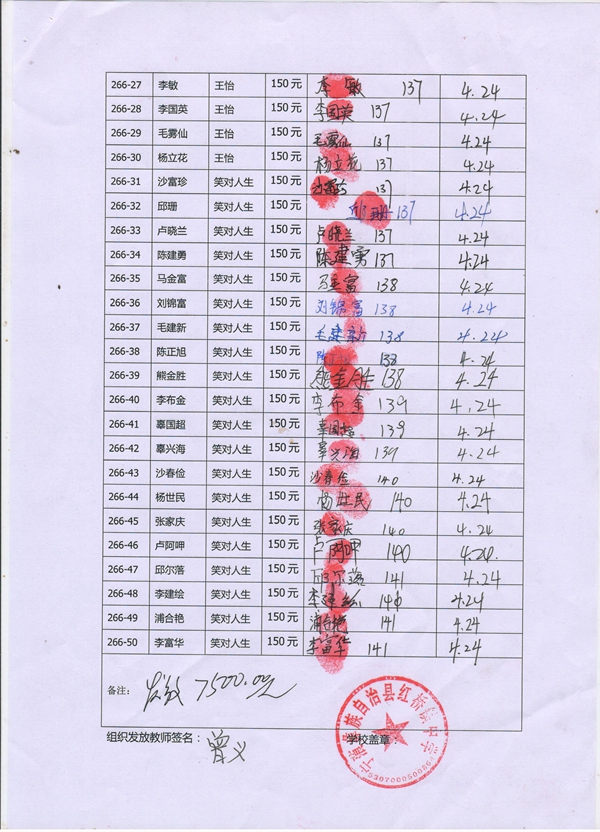 266-27 李敏 王怡 150元 李敏 137 4.24
266-28 李国英 王怡 150元 李国英 137 4.24
266-29 毛雾仙 王怡 150元 毛雾仙 137 4.24
266-30 杨立花 王怡 150元 杨立花 137 4.24
266-31 沙富珍 笑对人生 150元 137 4.24
266-32 邱珊 笑对人生 150元 邱珊 137 4.24
266-33 卢晓兰 笑对人生 150元 卢晓兰 137 4.24
266-34 陈建勇 笑对人生 150元 陈建勇 137 4.24
266-35 马金富 笑对人生 150元 马金富 138 4.24
266-36 刘锦富 笑对人生 150元 刘锦富 138 4.24
266-37 毛建新 笑对人生 150元 毛建新 138 4.24
266-38 陈正旭 笑对人生 150元 138 4.24
266-39 熊金胜 笑对人生 150元 熊金胜 138 4.24
266-40 李布金 笑对人生 150元 李布金 139 4.24
266-41 辜国超 笑对人生 150元 辜国超 139 4.24
266-42 辜兴海 笑对人生 150元 辜兴海 139 4.24
266-43 沙春俭 笑对人生 150元 沙春俭 140 4.24
266-44 杨世民 笑对人生 150元 杨世民 140 4.24
266-45 张家庆 笑对人生 150元 张家庆 140 4.24
266-46 卢阿呷 笑对人生 150元 卢阿呷 140 4.24
266-47 邱尔落 笑对人生 150元 邱尔落 141 4.24
266-48 李建绘 笑对人生 150元 4.24
266-49 浦合艳 笑对人生 150元 浦合艳 141 4.24
266-50 李富华 笑对人生 150元 李富华 141 4.24
备注： 发放 7500.00元
组织发放教师签名： 曾义 学校盖章：
族自治县红桥